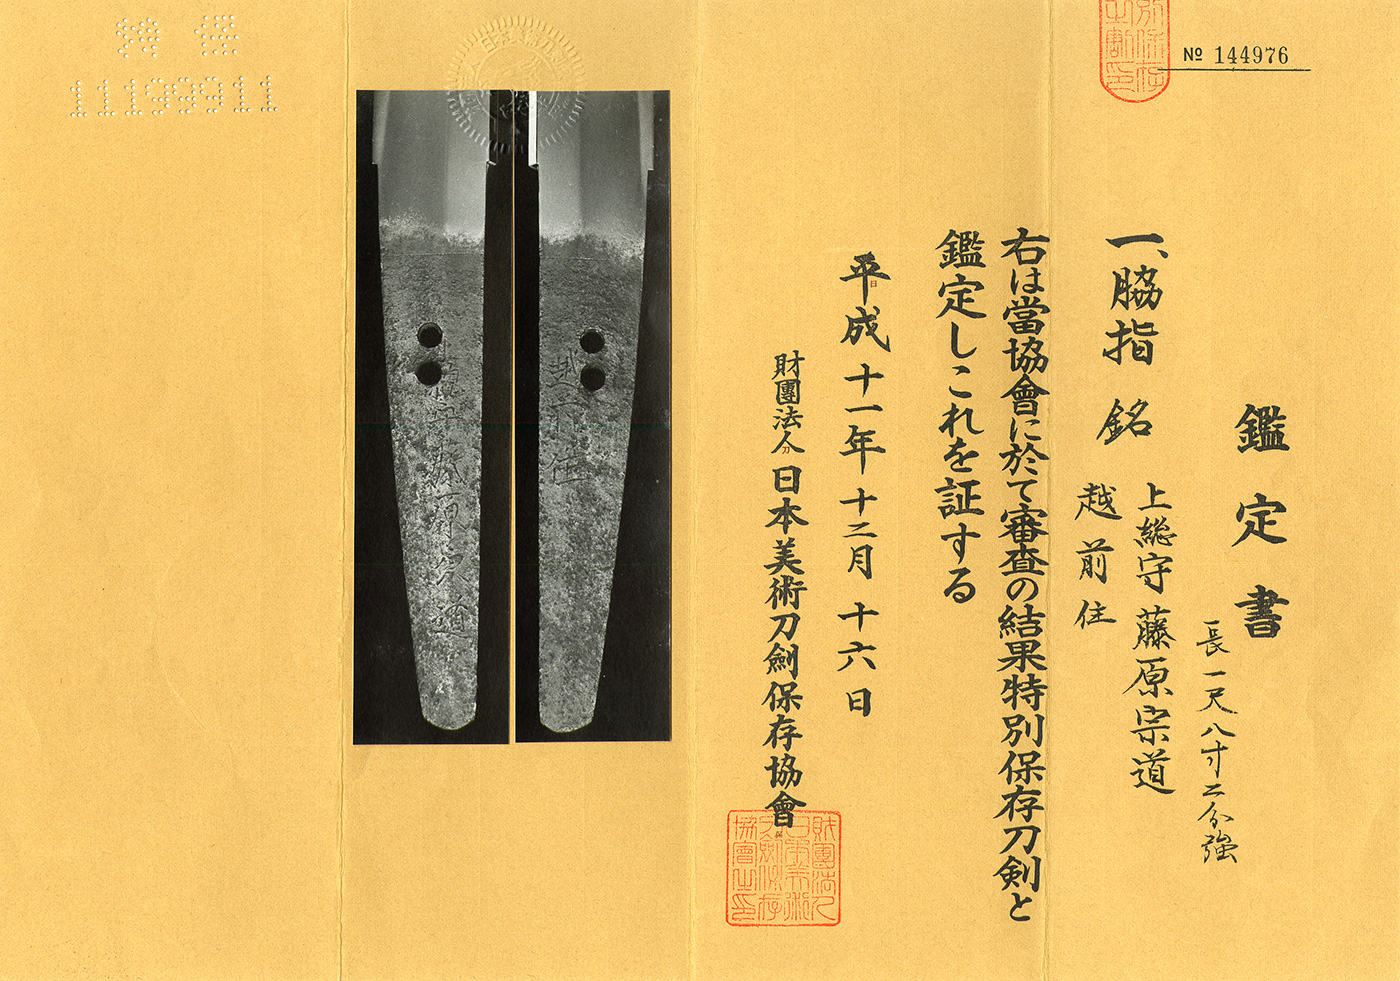 № 144976
鑑定書
長一尺八寸二分強
一、脇指 銘 上総守藤原宗道
越前住
右は當協會に於て審査の結果特別保存刀剣と
鑑定しこれを証する
平成十一年十二月十六日
財團法人日本美術刀劍保存協會
財團法人日本美術刀劍保存協會之印
越前住
11199911